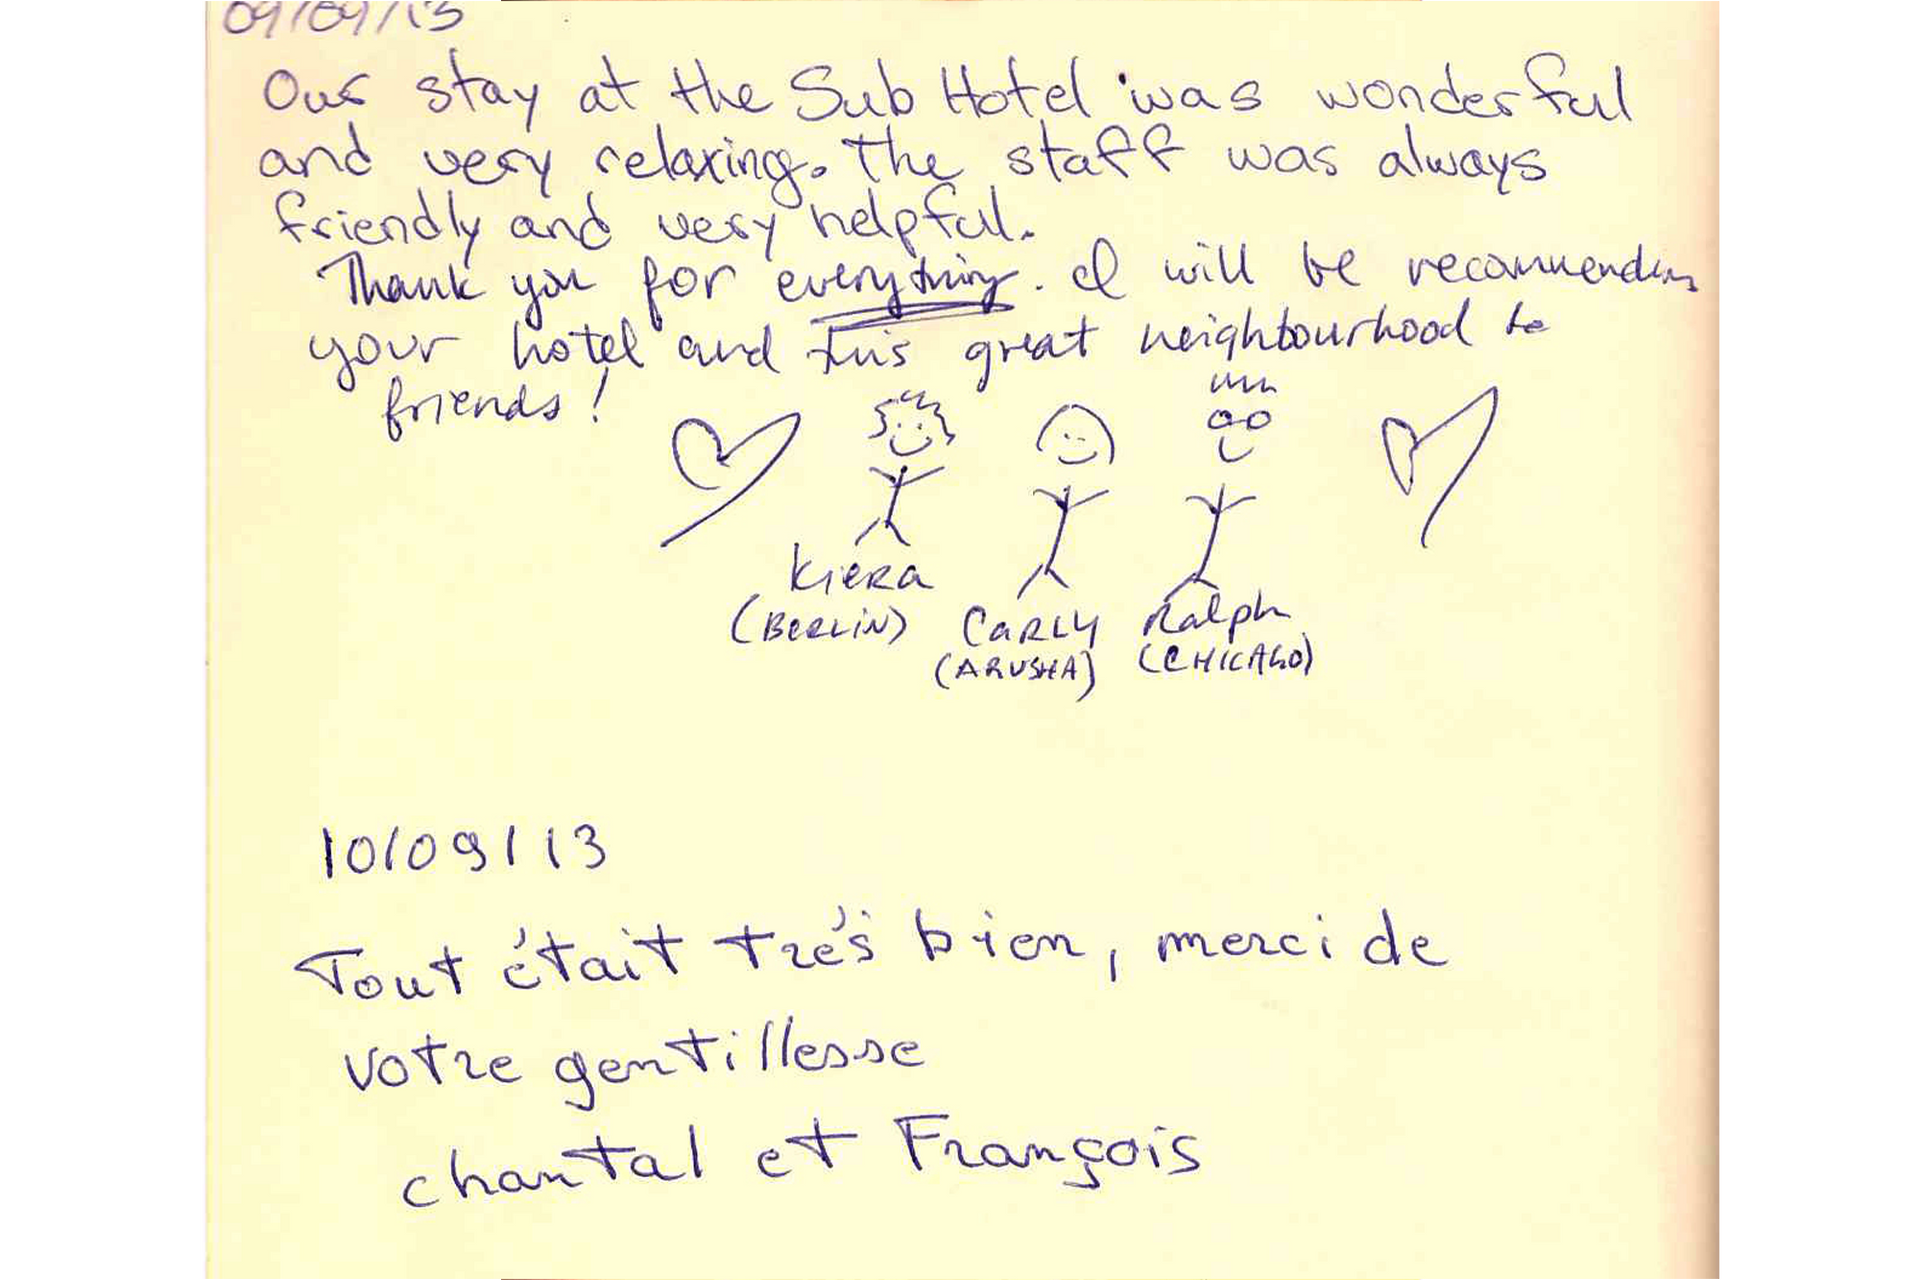 09/09/13
Our stay at the Sub Hotel was wonderful
and very relaxing. The staff was always
friendly and very helpful.
Thank you for everything. I will be recommending
your hotel and this great neighbourhood to
friends!
Kiera
(BERLiN)
CARLY
(ARUSHA)
Ralph
(CHICAGO)
10/09/13
Tout était trés bien, merci de
votre gentillesse
chantal et François